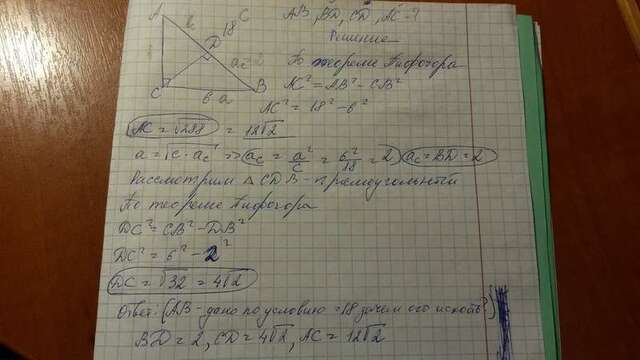 A
в
18
C
D
aс
C
B
6 a
AB, BD, CD, AC - ?
Решение
По теореме Пифогора
AC² = AB² - CB²
AC² = 18² - 6²
AC = √288 = 12√2
a = √c · aс => aс = a²/c = 6²/18 = 2 aс = BD = 2
Рассмотрим △ CDB - прямоугольный
По теореме Пифогора
DC² = CB² - DB²
DC² = 6² - 2²
DC = √32 = 4√2
Ответ: (AB - дано по условию = 18 зачем его искать?)
BD = 2, CD = 4√2, AC = 12√2